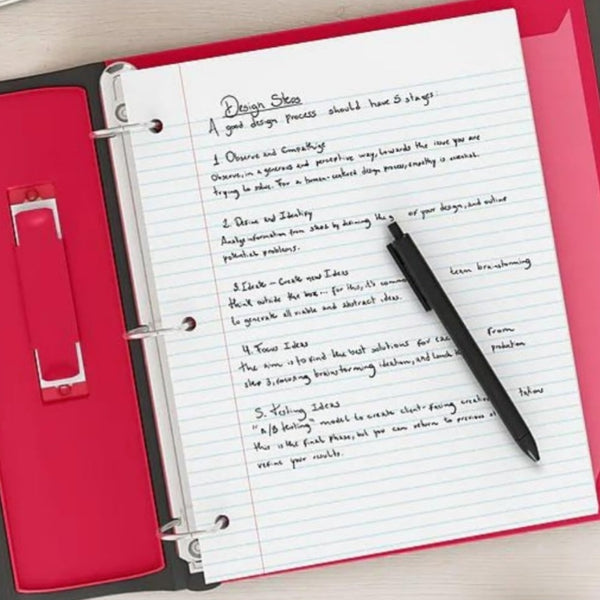 Design Steps
A good design process should have 5 stages:
1. Observe and Empathize
Observe, in a generous and perceptive way, towards the issue you are
trying to solve. For a human-centered design process, empathy is essential.
2. Define and Identify
Analyze information from step 1 by defining the of your design, and outline
potential problems.
3. Ideate - Create new Ideas
think outside the box... For this, it's team brainstorming
to generate all viable and abstract ideas.
4. Focus Ideas
the aim is to find the best solutions for from
step 3, focusing brainstorming ideation, and
5. Testing Ideas
"A/B testing" model to create client-facing
this is the final phase, but you can return to previous
refine your results.